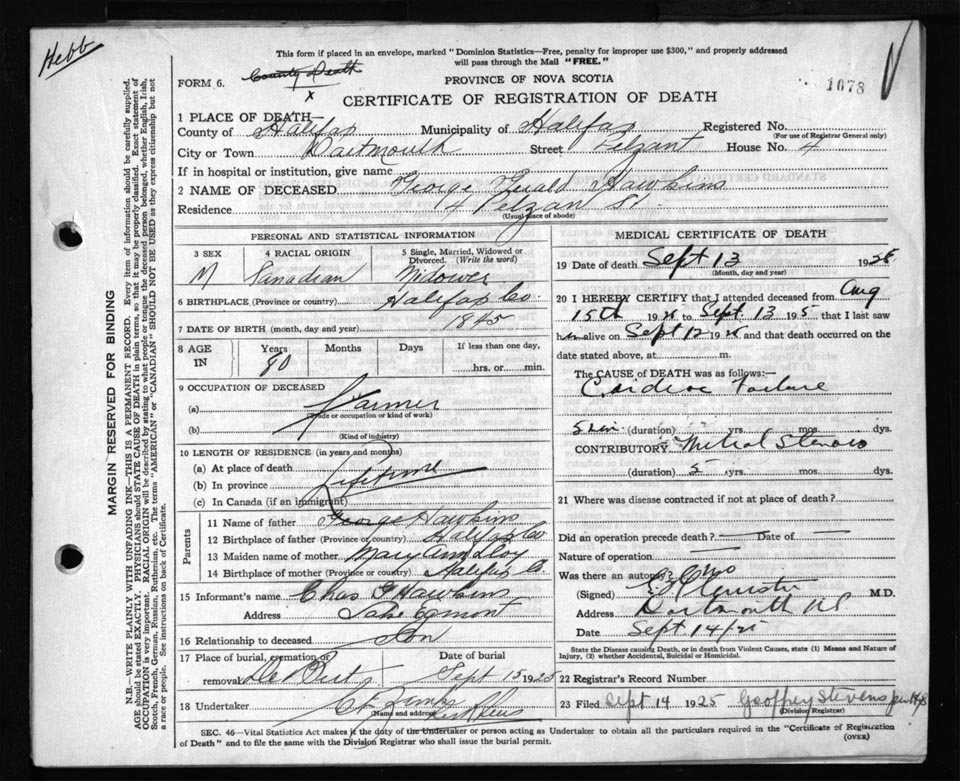 Hebb
This form if placed in an envelope, marked "Dominion Statistics—Free, penalty for improper use $300," and properly addressed
will pass through the Mail "FREE."
FORM 6. County Death
x
PROVINCE OF NOVA SCOTIA
1078
CERTIFICATE OF REGISTRATION OF DEATH
1 PLACE OF DEATH—
County of Halifax Municipality of Halifax Registered No.
(For use of Registrar General only)
City or Town Dartmouth Street Pelzant House No. 4
If in hospital or institution, give name
2 NAME OF DECEASED George Gerald Hawkins
Residence 4 Pelzan St.
(Usual place of abode)
PERSONAL AND STATISTICAL INFORMATION
3 SEX 4 RACIAL ORIGIN 5 Single, Married, Widowed or Divorced. (Write the word)
M Canadian Widower
6 BIRTHPLACE (Province or country) Halifax Co.
7 DATE OF BIRTH (month, day and year) 1845
8 AGE IN Years Months Days If less than one day,
80 hrs. or min.
9 OCCUPATION OF DECEASED
(a) Farmer
(Trade or occupation or kind of work)
(b)
(Kind of industry)
10 LENGTH OF RESIDENCE (in years and months)
(a) At place of death
(b) In province Lifetime
(c) In Canada (if an immigrant)
Parents
11 Name of father George Hawkins
12 Birthplace of father (Province or country) Halifax Co
13 Maiden name of mother Mary Ann
14 Birthplace of mother (Province or country) Halifax Co.
15 Informant's name Chas Hawkins
Address Lake Egmont
16 Relationship to deceased Son
17 Place of burial, cremation or Date of burial
removal De Bert Sept 15 1925
18 Undertaker
(Name and address)
MEDICAL CERTIFICATE OF DEATH
19 Date of death Sept 13 1925
(Month, day and year)
20 I HEREBY CERTIFY that I attended deceased from Aug
15th 19 25 to Sept 13 19 5 that I last saw
him alive on Sept 12 19 25 and that death occurred on the
date stated above, at m.
The CAUSE of DEATH was as follows:—
Cardiac Failure
(duration) yrs. mos. dys.
CONTRIBUTORY Mitral Stenosis
(duration) 5 yrs. mos. dys.
21 Where was disease contracted if not at place of death?
Did an operation precede death? — Date of —
Nature of operation
Was there an autopsy? No
(Signed) M.D.
Address Dartmouth NS
Date Sept 14/25
State the Disease causing Death, or in death from Violent Causes, state (1) Means and Nature of
Injury, (2) whether Accidental, Suicidal or Homicidal.
22 Registrar's Record Number
23 Filed Sept 14 1925 Geoffrey Stevens
(Division Registrar)
SEC. 46—Vital Statistics Act makes it the duty of the Undertaker or person acting as Undertaker to obtain all the particulars required in the "Certificate of Registration
of Death" and to file the same with the Division Registrar who shall issue the burial permit. (OVER)
MARGIN RESERVED FOR BINDING
N.B.—WRITE PLAINLY WITH UNFADING INK—THIS IS A PERMANENT RECORD. Every item of information should be carefully supplied.
AGE should be stated EXACTLY. PHYSICIANS should STATE CAUSE OF DEATH in plain terms, so that it may be properly classified. Exact statement of
OCCUPATION is very important. RACIAL ORIGIN will be described by stating to what people or tongue the deceased person belonged, whether English, Irish,
Scotch, French, German, Russian, Ruthenian, etc. The terms "AMERICAN" or "CANADIAN" SHOULD NOT BE USED as they express citizenship but not
a race or people. See instructions on back of Certificate.